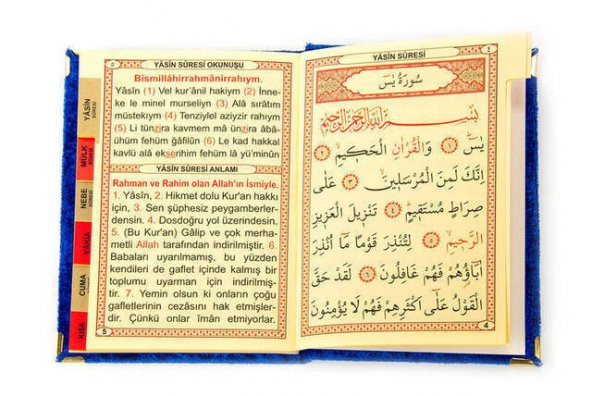 YÂSÎN SÛRESİ OKUNUŞU
Bismillâhirrahmânirrahıym.
Yâsîn (1) Vel kur'ânil hakiym (2) İnne-
ke le minel murseliyn (3) Alâ sırâtım
müstekıym (4) Tenziylel aziyzir rahıym
(5) Li tünzira kavmem mâ ünzira âbâ-
ühüm fehüm ğâfilûn (6) Le kad hakkal
kavlü alâ ekserihim fehüm lâ yü'minûn
YÂSİN SÛRESİ ANLAMI
Rahman ve Rahim olan Allah'ın İsmiyle.
1. Yâsîn, 2. Hikmet dolu Kur'an hakkı
için, 3. Sen şüphesiz peygamberler-
densin. 4. Dosdoğru yol üzerindesin.
5. (Bu Kur'an) Gâlip ve çok merha-
metli Allah tarafından indirilmiştir. 6.
Babaları uyarılmamış, bu yüzden
kendileri de gaflet içinde kalmış bir
toplumu uyarman için indirilmiş-
tir. 7. Yemin olsun ki onların çoğu
gafletlerinin cezasını hak etmişler-
dir. Çünkü onlar îmân etmiyorlar.
5
YÂSÎN SÛRESİ
٤
سُورَةُ يٰسۤ
بِسْمِ اللّٰهِ الرَّحْمٰنِ الرَّحِيمِ
يٰسۤ ﴿١﴾ وَالْقُرْاٰنِ الْحَكِيمِ ﴿٢﴾
اِنَّكَ لَمِنَ الْمُرْسَلِينَ ﴿٣﴾ عَلٰى
صِرَاطٍ مُسْتَقِيمٍ ﴿٤﴾ تَنْزِيلَ الْعَزِيزِ
الرَّحِيمِ ﴿٥﴾ لِتُنْذِرَ قَوْمًا مَا اُنْذِرَ
اٰبَاؤُهُمْ فَهُمْ غَافِلُونَ ﴿٦﴾ لَقَدْ حَقَّ
الْقَوْلُ عَلٰى اَكْثَرِهِمْ فَهُمْ لَا يُؤْمِنُونَ
4
YÂSİN
SÛRESİ
MÜLK
SÛRESİ
NEBE
SÛRESİ
VÂKIA
CUMA
KISA